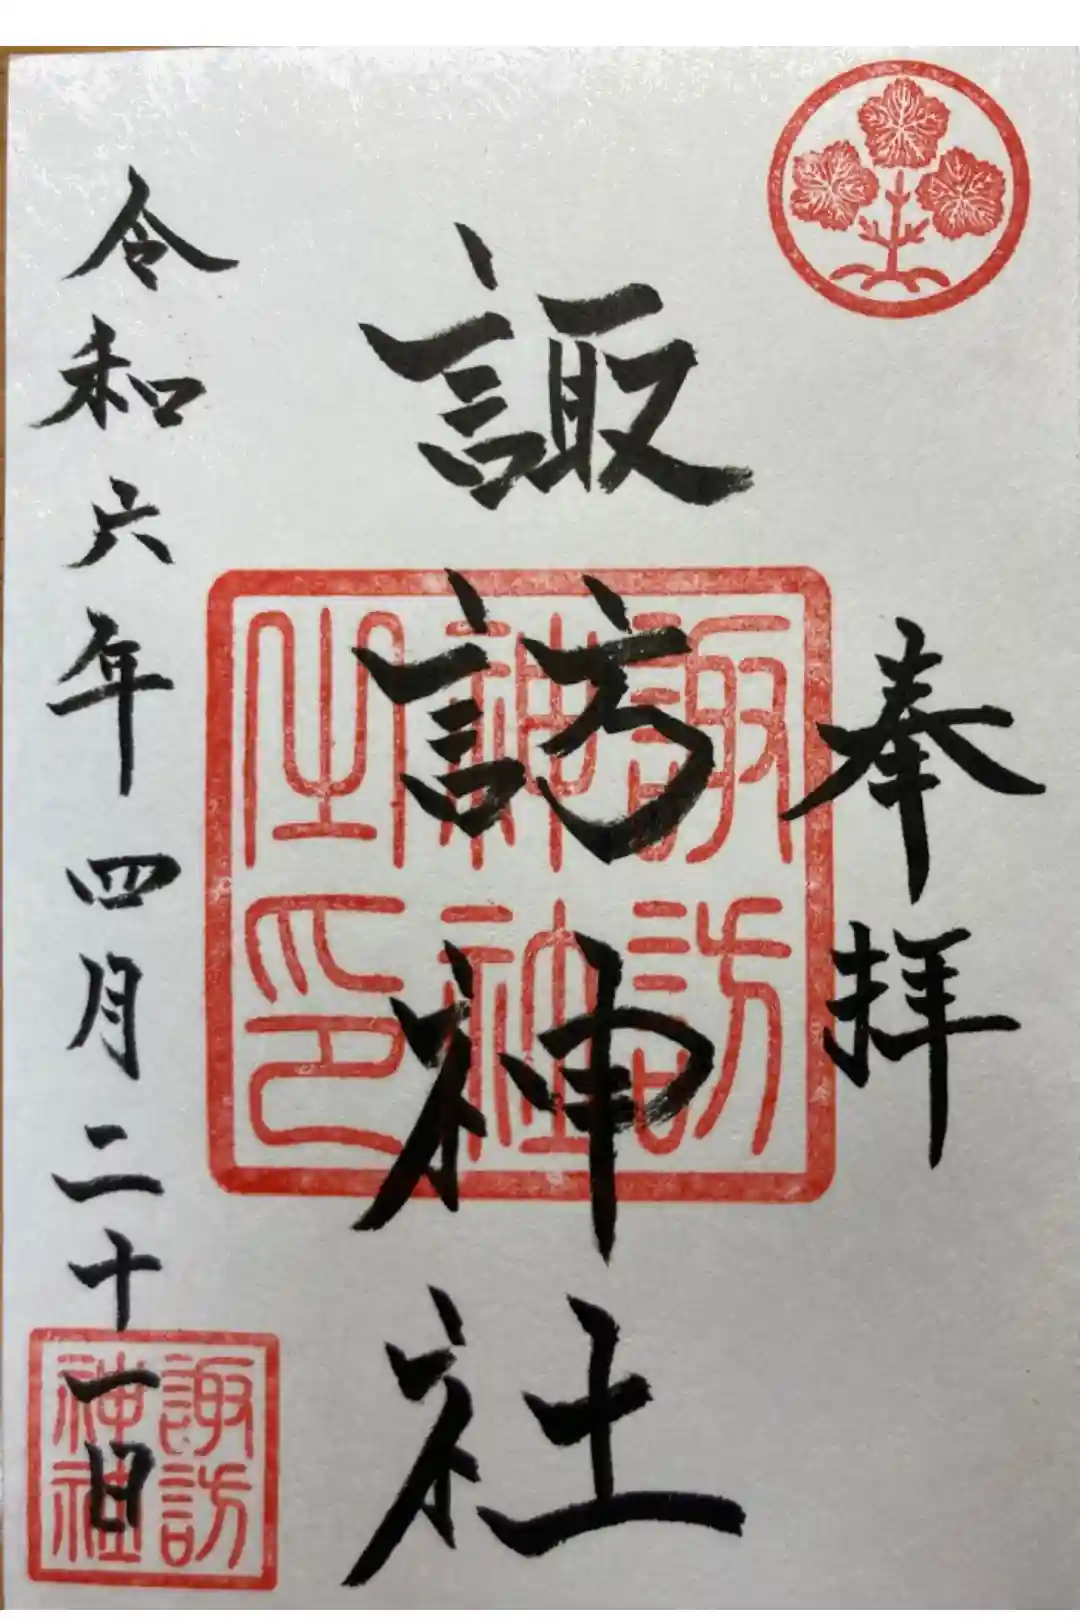 奉拝
諏訪神社
諏訪
神社
之印
令和六年四月二十一日
諏訪
神社